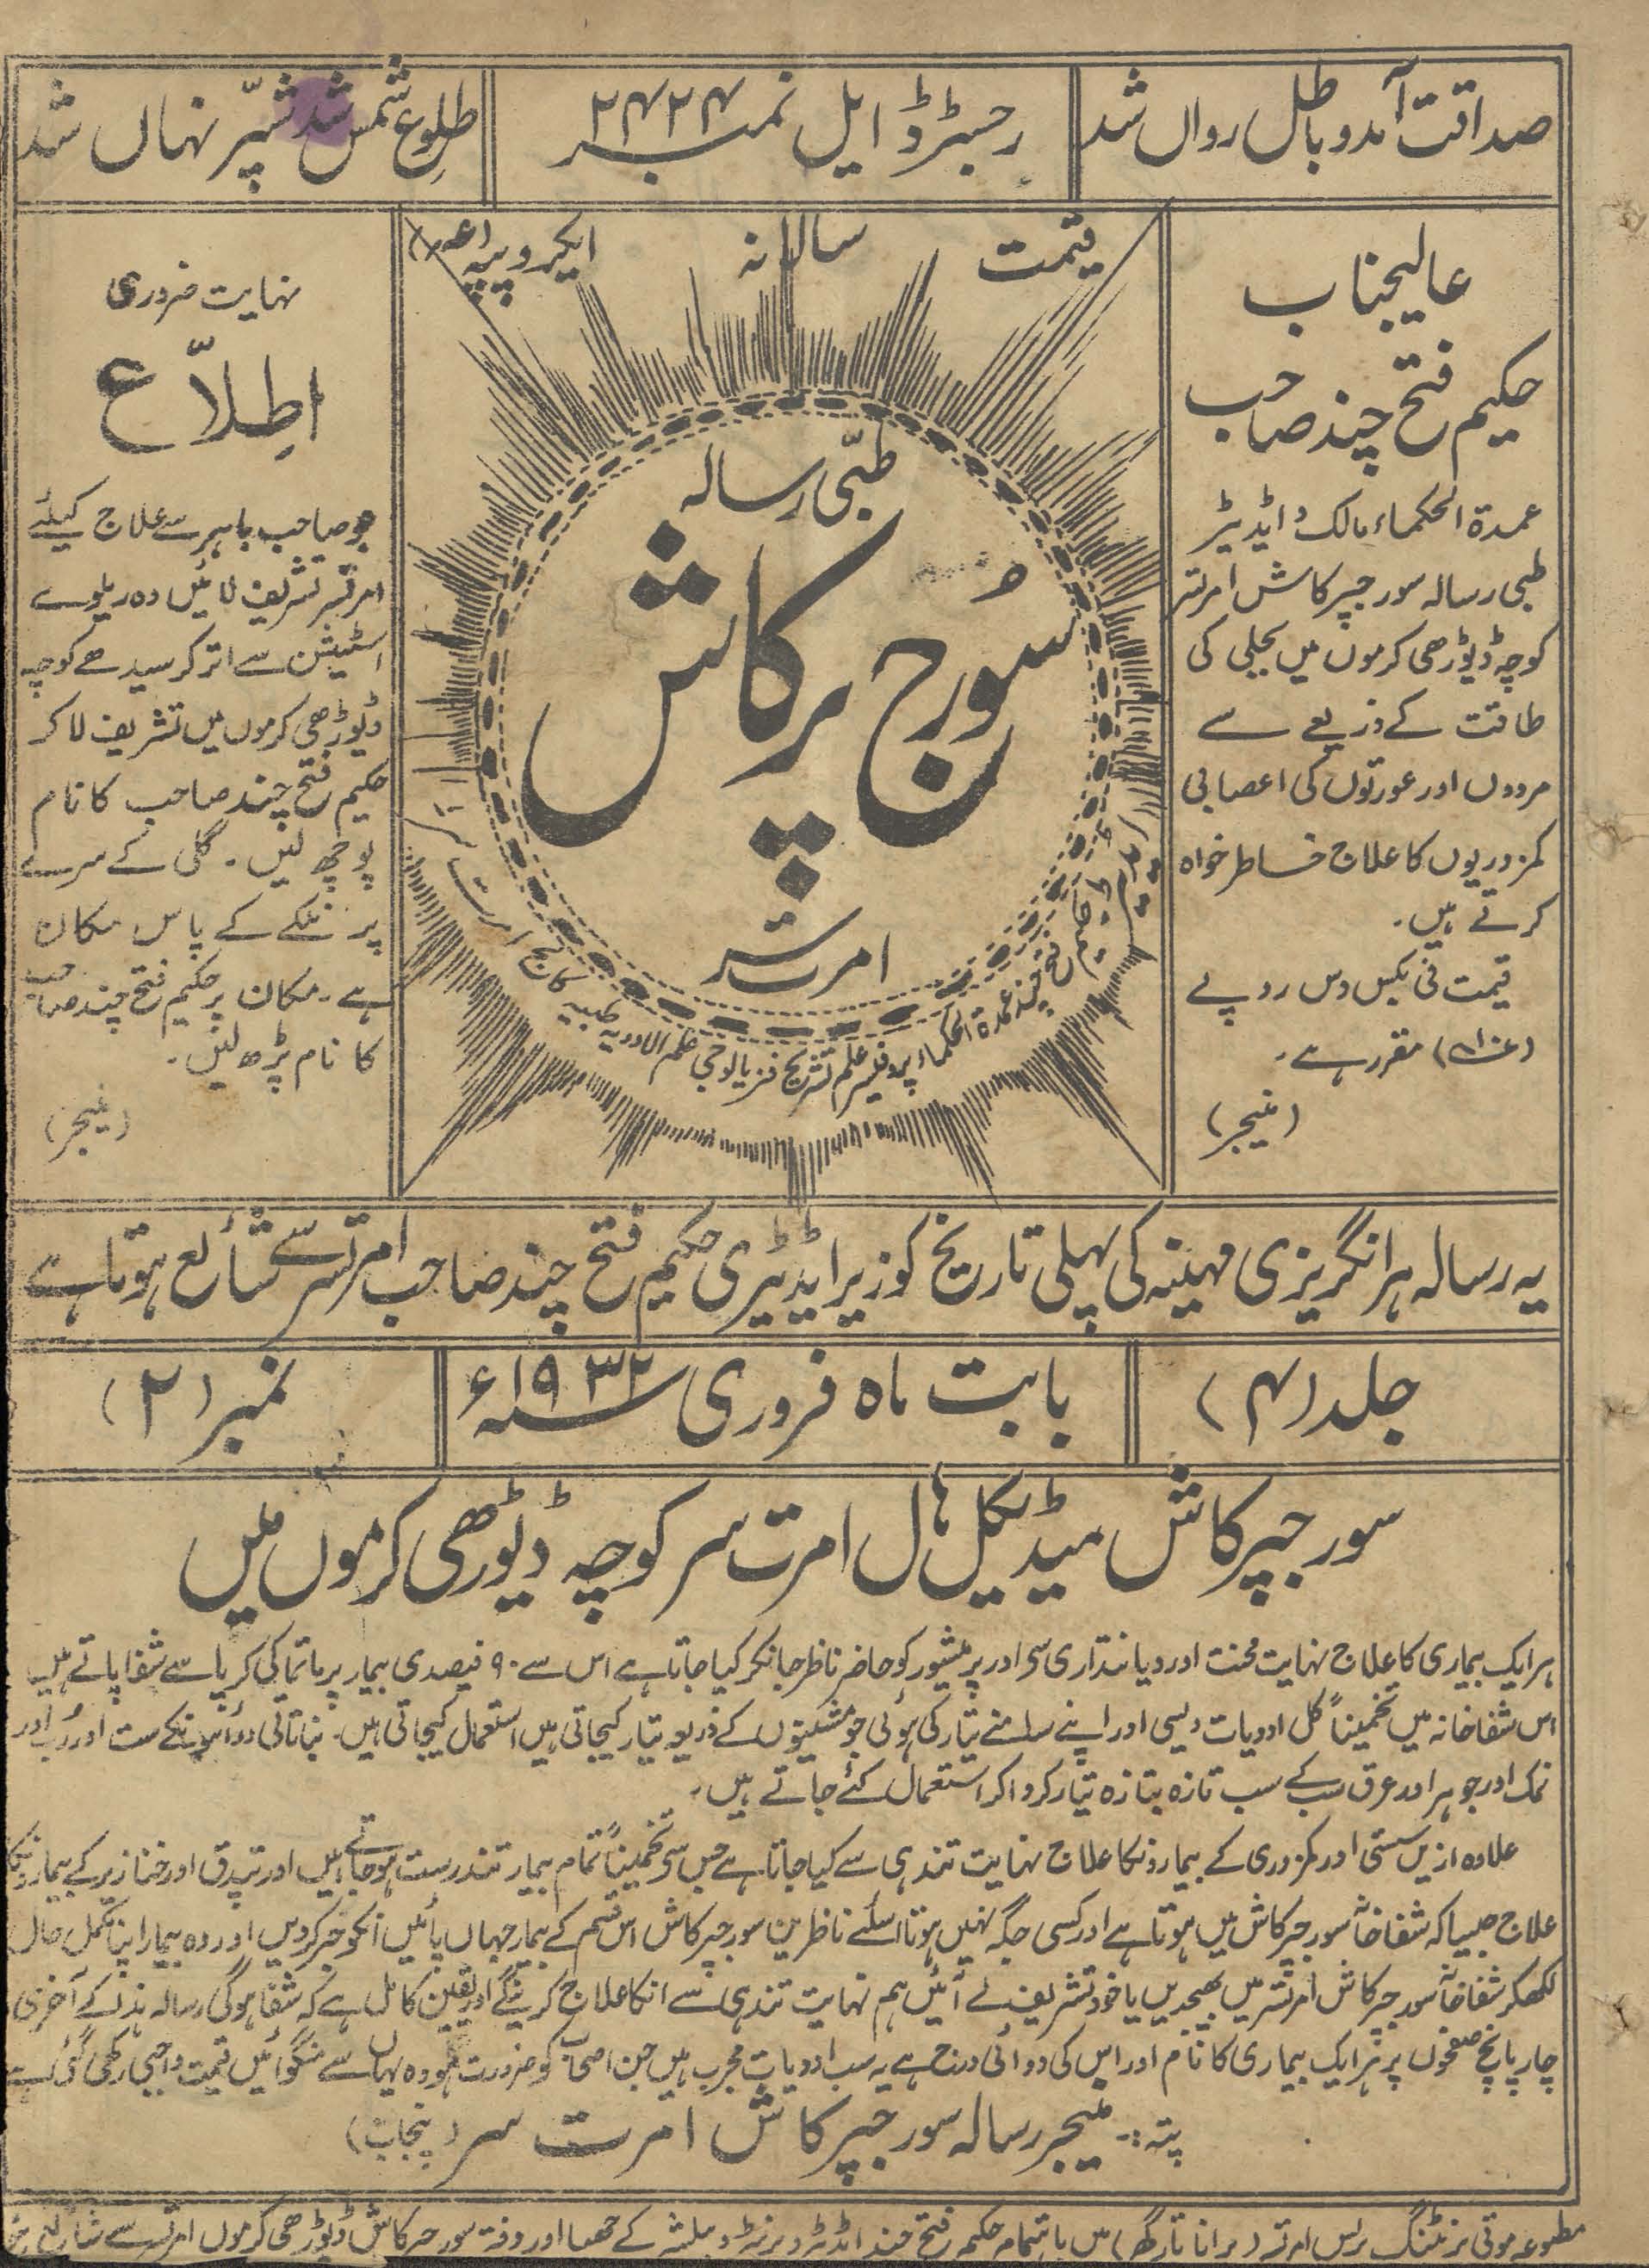 صداقت آمد و باطل رواں شد
رجسٹرڈ ایل نمبر ۲۴۲۴
طلوع شمس شد شپّر نہاں شد
عالیجناب
حکیم فتح چند صاحب
عمدۃ الحکماء مالک و ایڈیٹر
طبی رسالہ سورجپرکاش امرتسر
کوچہ ڈیوڑھی کرموں میں بجلی کی
طاقت کے ذریعے سے
مردوں اور عورتوں کی اعصابی
کمزوریوں کا علاج خاطر خواہ
کرتے ہیں۔
قیمت فی بکس دس روپے
مقرر ہے۔
(منیجر)
قیمت سالانہ ایکروپیہ
طبّی رسالہ
سُورج پرکاش
امرتسر
حکیم فتح چند عمدۃ الحکماء پروفیسر علم تشریح فزیالوجی علم الادویہ طبیہ کالج امرتسر
نہایت ضروری
اطِلاّع
جو صاحب باہر سے علاج کیلئے
امرتسر تشریف لائیں وہ ریلوے
اسٹیشن سے اتر کر سیدھے کوچہ
ڈیوڑھی کرموں میں تشریف لا کر
حکیم فتح چند صاحب کا نام
پوچھ لیں۔ گلی کے سرے
پر نلکے کے پاس مکان
ہے۔ مکان پر حکیم فتح چند صاحب
کا نام پڑھ لیں۔
(منیجر)
یہ رسالہ ہر انگریزی مہینہ کی پہلی تاریخ کو زیر ایڈیٹری حکیم فتح چند صاحب امرتسر سے شائع ہوتا ہے
جلد (۴)
بابت ماہ فروری ۱۹۳۲ء
نمبر (۲)
سورجپرکاش میڈیکل ہال امرت سر کوچہ ڈیوڑھی کرموں میں
ہر ایک بیماری کا علاج نہایت محنت اور دیانتداری سی اور پرمیشور کو حاضر ناظر جانکر کیا جاتا ہے اس سے ۹۰ فیصدی بیمار پرماتما کی کرپا سے شفا پاتے ہیں
اس شفاخانہ میں تخمیناً کل ادویات دیسی اور اپنے سامنے تیار کی ہوئی جو مشینوں کے ذریعہ تیار کیجاتی ہیں استعمال کیجاتی ہیں۔ نباتاتی دوائیوں کے ست اور رُب اور
نمک اور جوہر اور عرق سب کے سب تازہ بتازہ تیار کروا کر استعمال کئے جاتے ہیں۔
علاوہ ازیں سستی اور کمزوری کے بیمارونکا علاج نہایت تندہی سے کیا جاتا ہے جس سی تخمیناً تمام بیمار تندرست ہو جاتے ہیں اور تپدق اور خنازیر کے بیمارونکا
علاج جیسا کہ شفاخانہ سورجپرکاش میں ہوتا ہے اور کسی جگہ نہیں ہوتا اسلئے ناظرین سورجپرکاش اس قسم کے بیمار جہاں پائیں انکو خبر کردیں اور وہ بیمار اپنا مکمل حال
لکھکر شفاخانہ سورجپرکاش امرتسر میں بھیجدیں یا خود تشریف لے آئیں ہم نہایت تندہی سے انکا علاج کرینگے اور یقین کامل ہے کہ شفا ہوگی رسالہ ہذا کے آخری
چار پانچ صفحوں پر ہر ایک بیماری کا نام اور اس کی دوائی درج ہے یہ سب ادویات مجرب ہیں جن اصحاب کو ضرورت ہو وہ یہاں سے منگوائیں قیمت واجبی رکھی گئی ہے
پتہ:۔ منیجر رسالہ سورجپرکاش امرت سر (پنجاب)
مطبوعہ موتی پرنٹنگ پریس امرتسر (پرانا تار گھر) میں باہتمام حکیم فتح چند ایڈیٹر و پرنٹر و پبلشر کے چھپا اور دفتر سورجپرکاش ڈیوڑھی کرموں امرتسر سے شائع ہوا